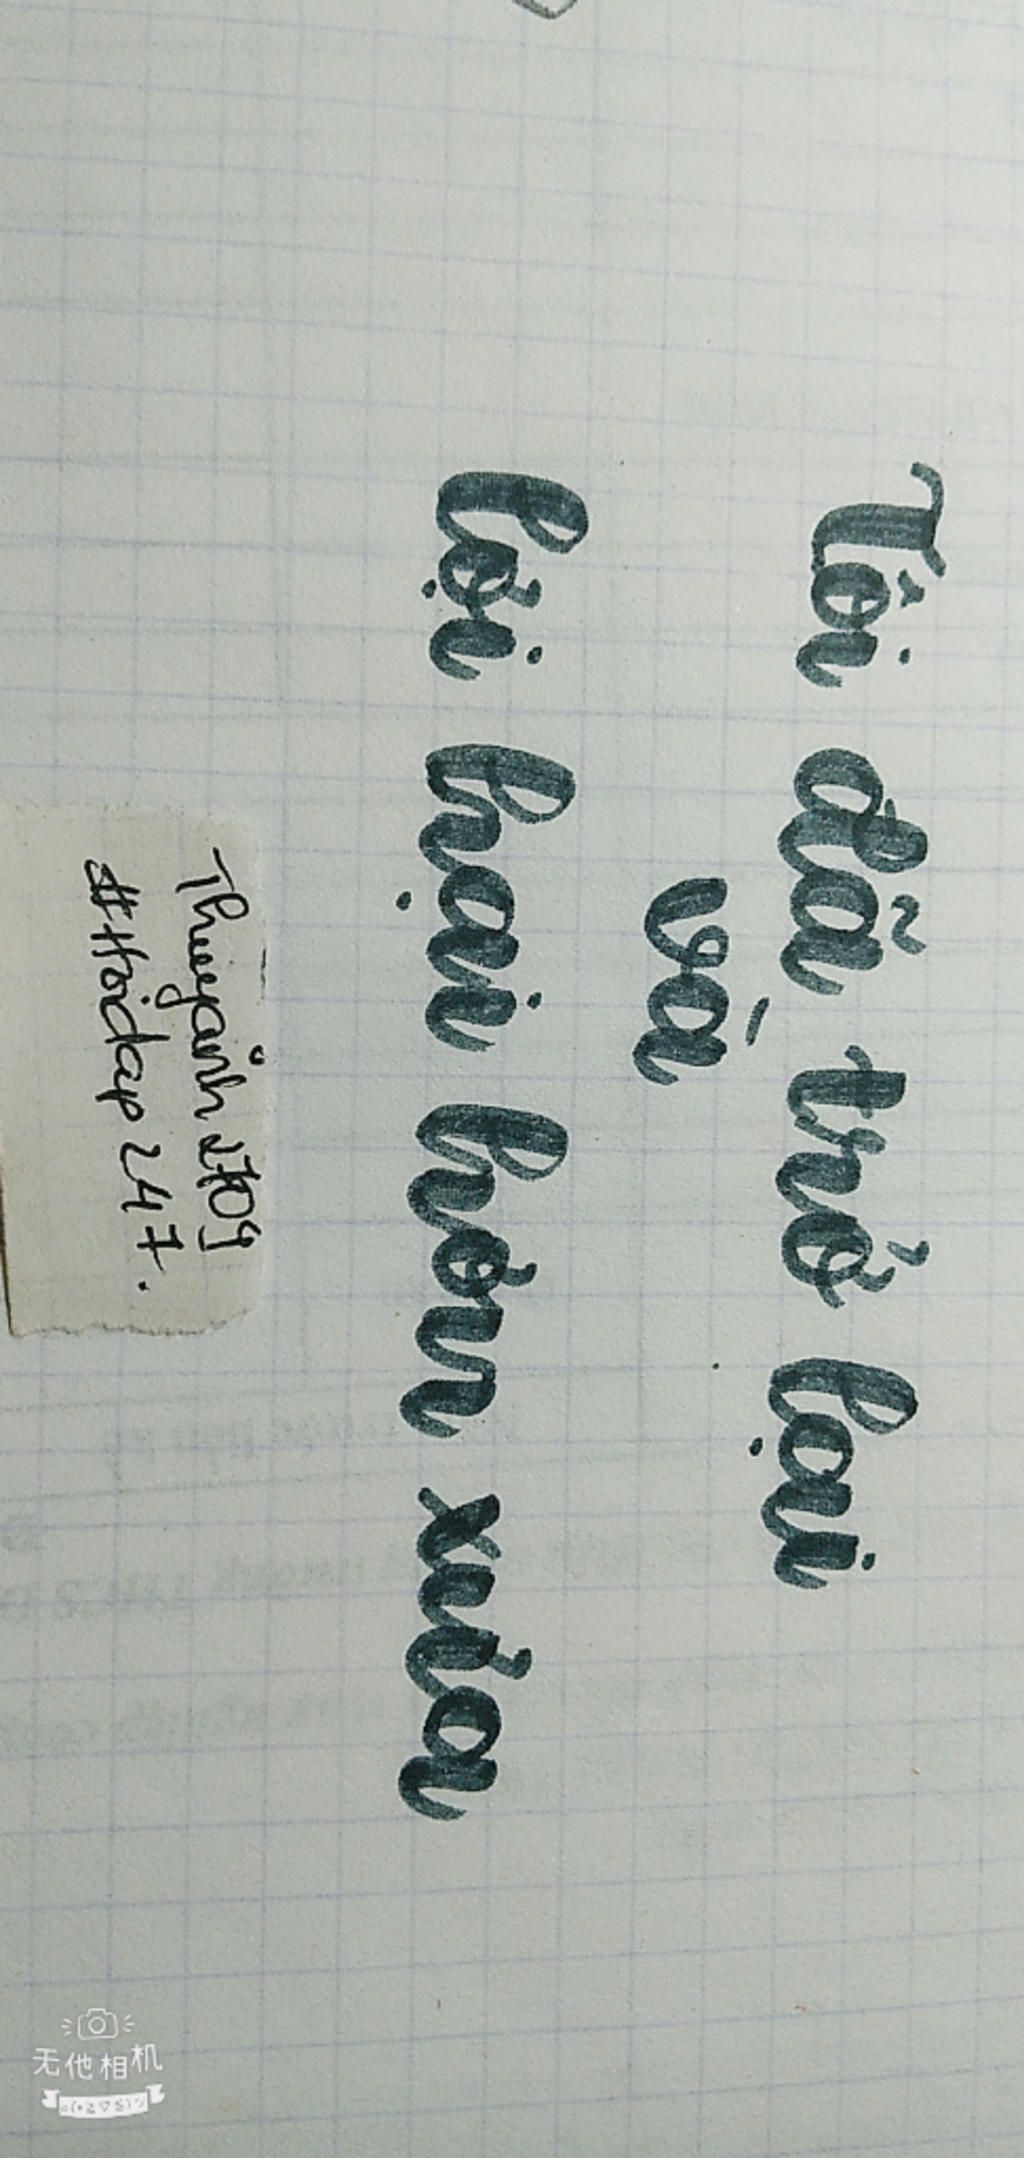 Tôi đã trở lại
và
lợi hại hơn xưa
Thuyanh2709
#Hoidap247.
无他相机